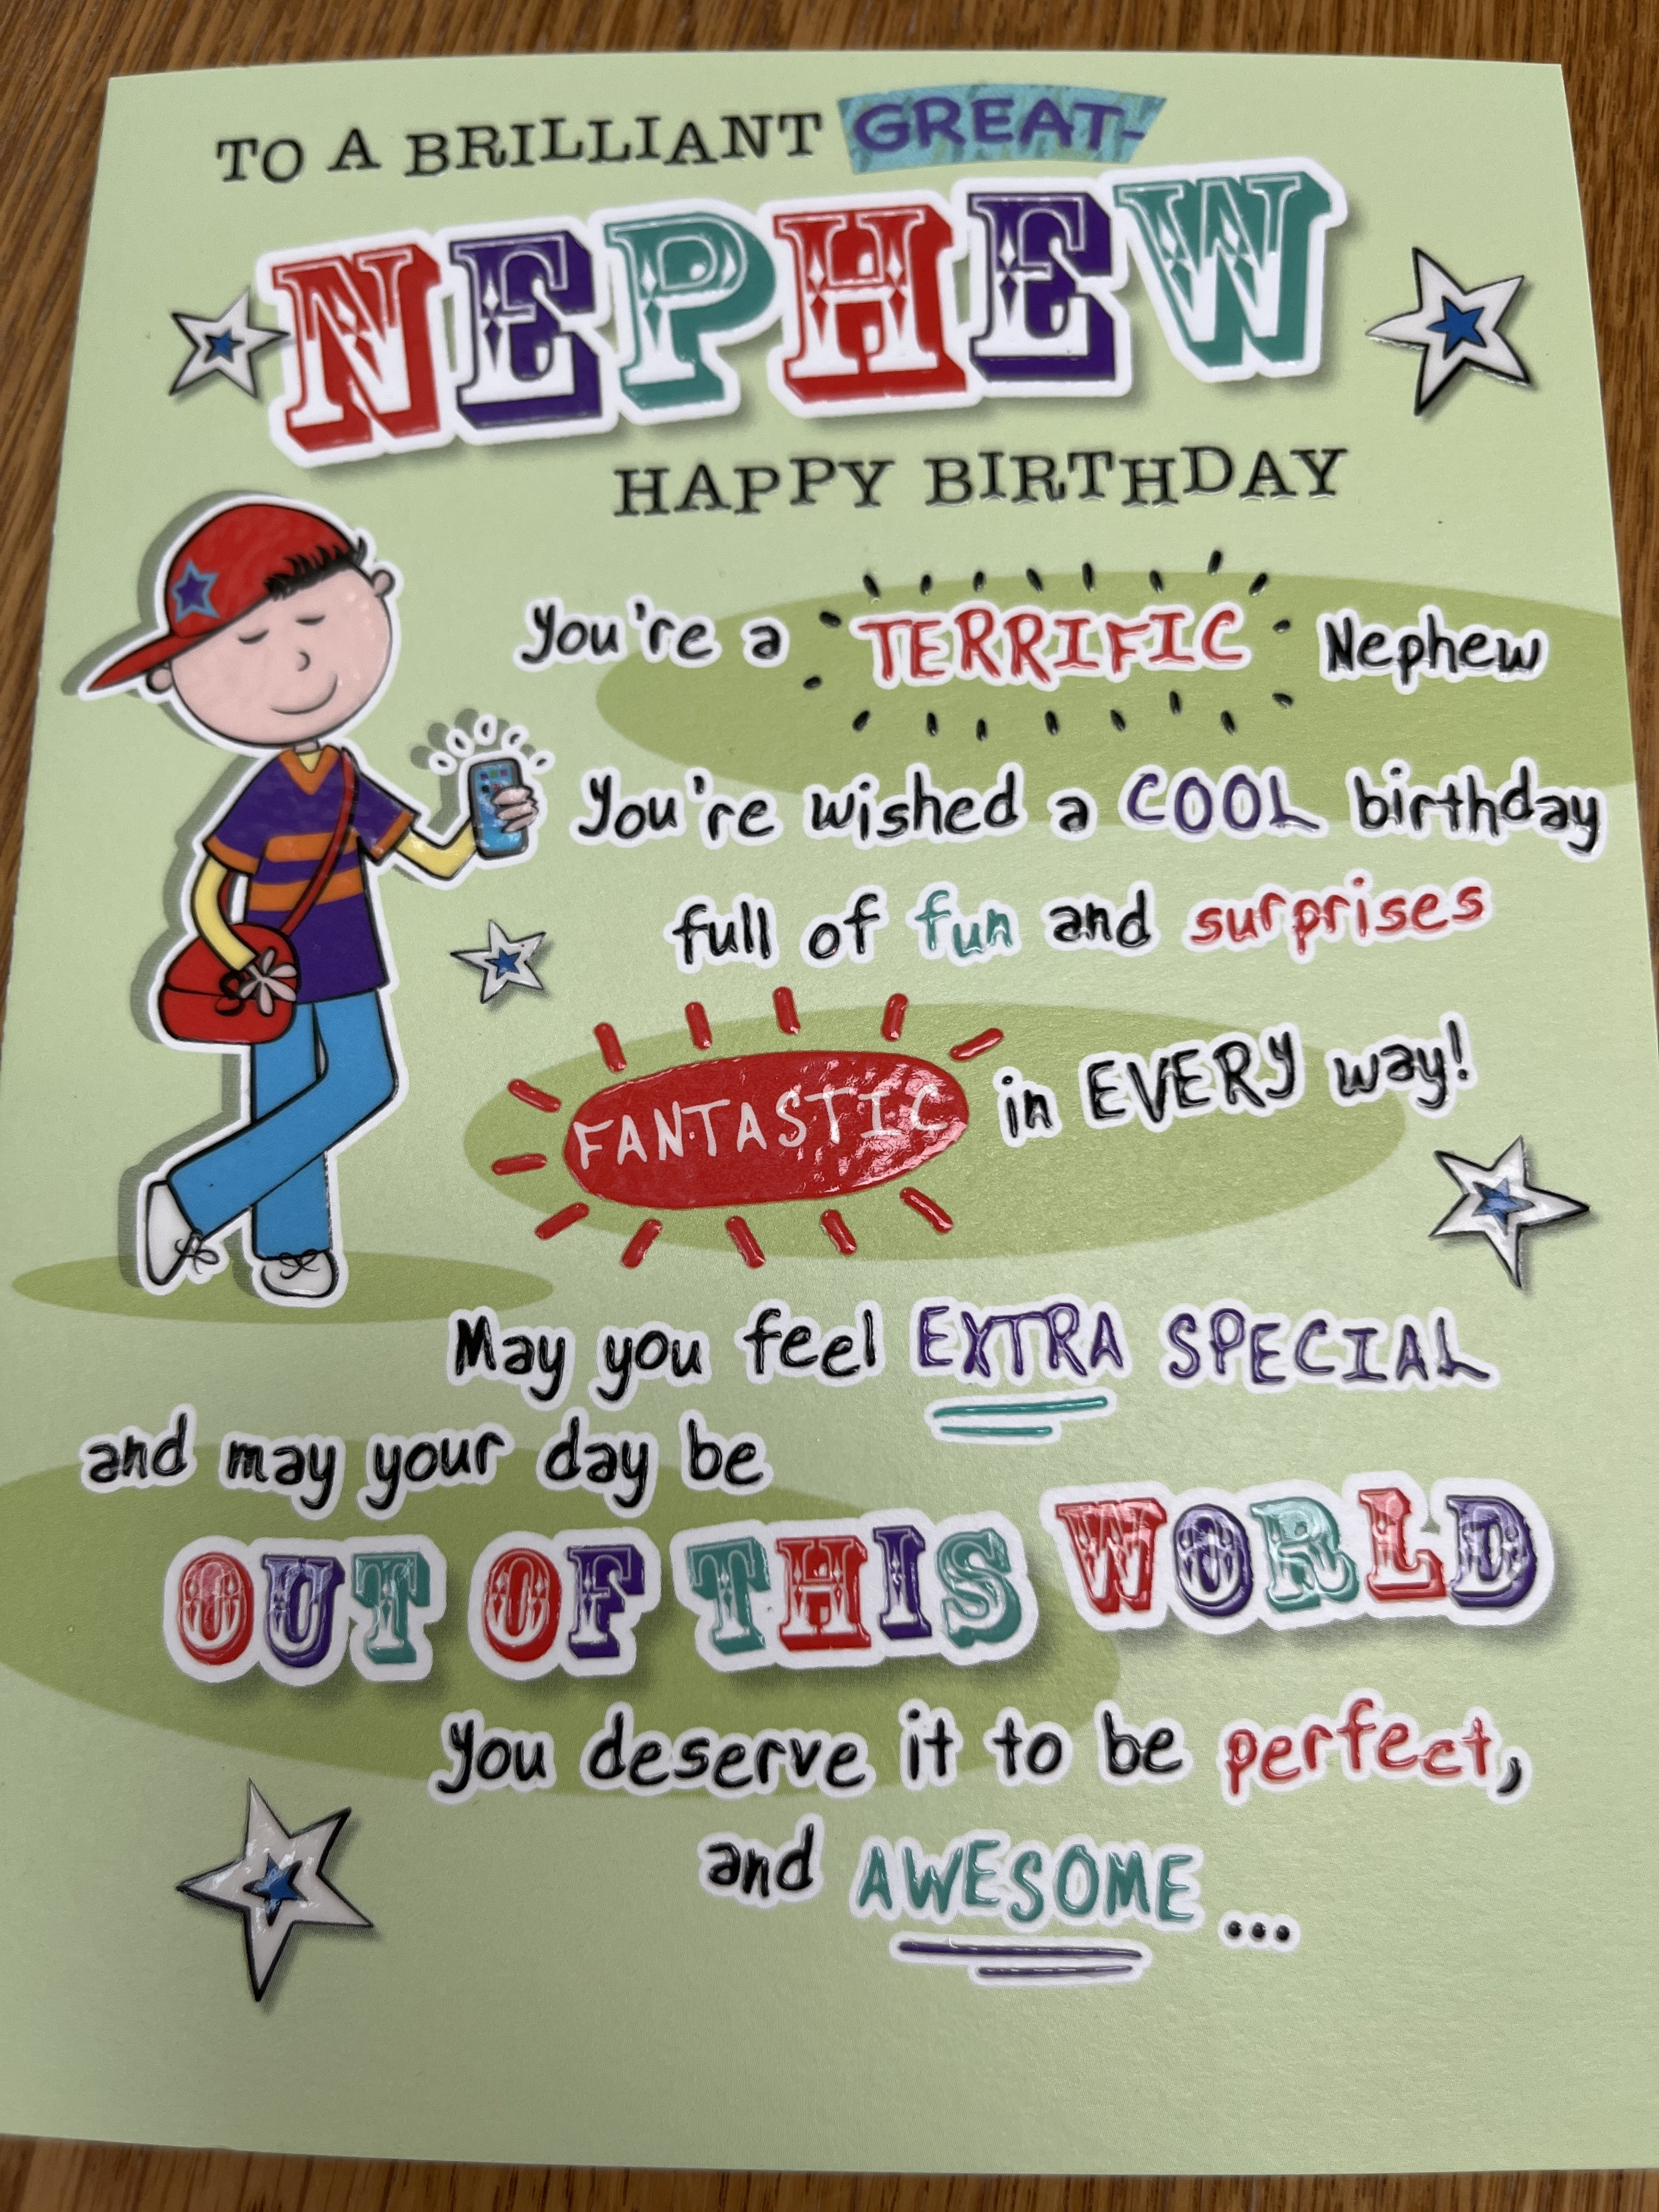 TO A BRILLIANT GREAT-
NEPHEW
HAPPY BIRTHDAY
You're a TERRIFIC Nephew
You're wished a COOL birthday
full of fun and surprises
FANTASTIC in EVERY way!
May you feel EXTRA SPECIAL
and may your day be
OUT OF THIS WORLD
You deserve it to be perfect,
and AWESOME...